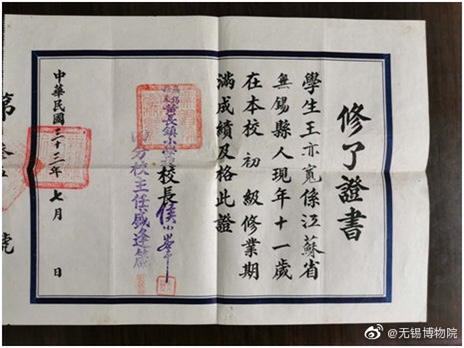 修了證書
學生王亦寬係江蘇省
無錫縣人現年十一歲
在本校初級修業期
滿成績及格此證
長鎮小學校長侯
分校主任盛逢
中華民國三十三年七月 日
第 號
@无锡博物院